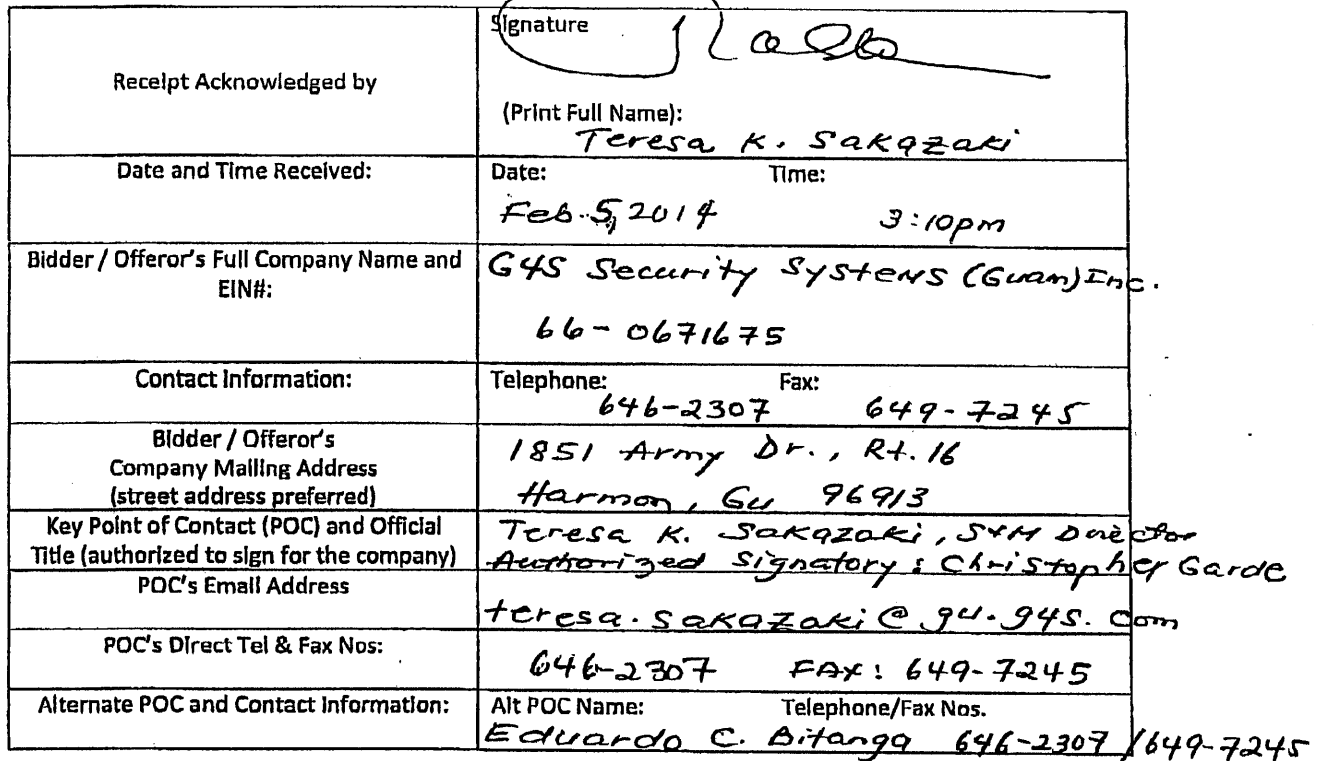 Receipt Acknowledged by
Signature
(Print Full Name):
Teresa K. Sakazaki
Date and Time Received:
Date: Time:
Feb. 5, 2014 3:10pm
Bidder / Offeror's Full Company Name and
EIN#:
G4S Security Systems (Guam) Inc.
66-0671675
Contact Information:
Telephone: Fax:
646-2307 649-7245
Bidder / Offeror's
Company Mailing Address
(street address preferred)
1851 Army Dr., Rt. 16
Harmon, Gu 96913
Key Point of Contact (POC) and Official
Title (authorized to sign for the company)
Teresa K. Sakazaki, S+M Director
Authorized Signatory: Christopher Garde
POC's Email Address
teresa.sakazaki@gu.g4s.com
POC's Direct Tel & Fax Nos:
646-2307 FAX: 649-7245
Alternate POC and Contact Information:
Alt POC Name: Telephone/Fax Nos.
Eduardo C. Bitanga 646-2307 / 649-7245